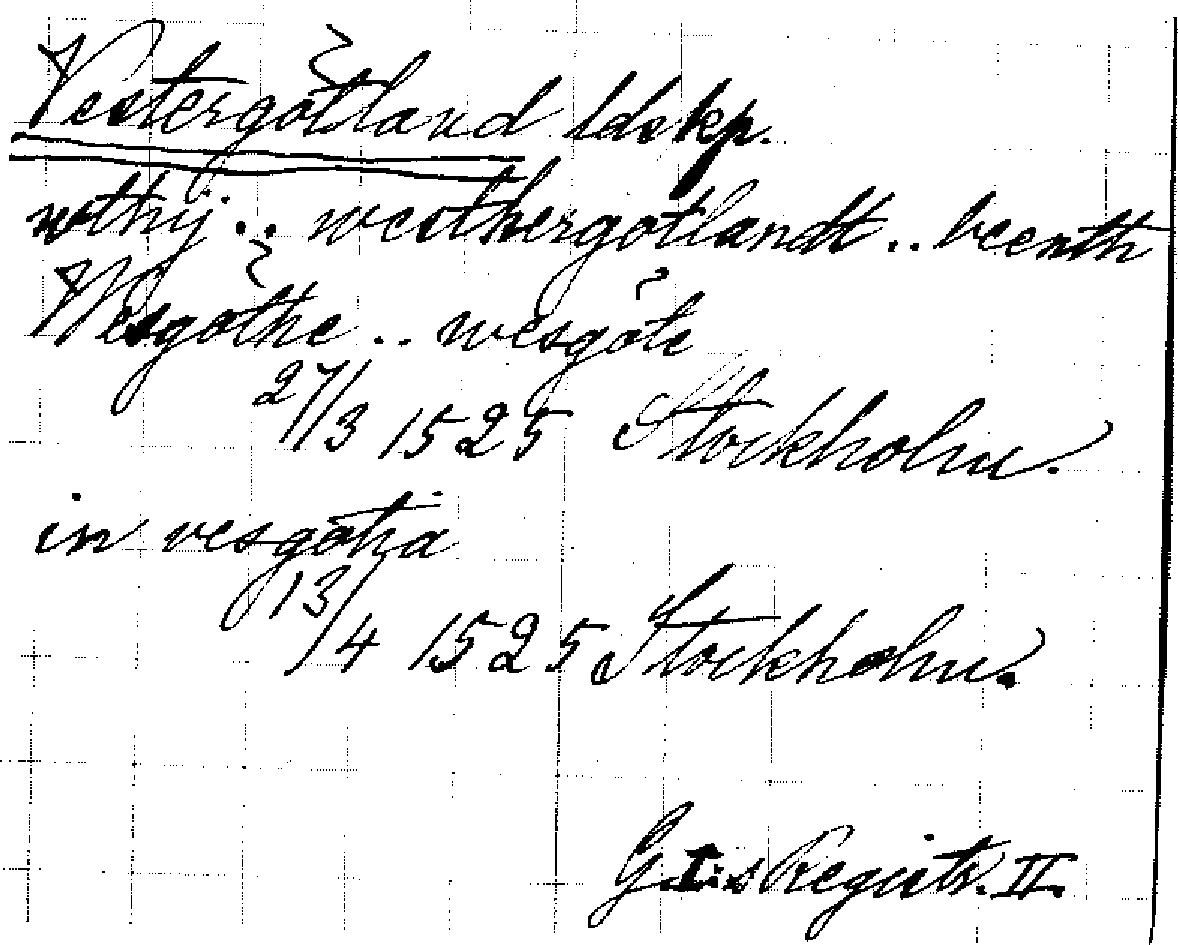 Vestergötland ldskp.
wthij .. westhergötlandt .. beenth
Wesgöthe .. wesgöte
27/3 1525 Stockholm.
in vesgotia
13/4 1525 Stockholm.
G.I:s Registr. II.